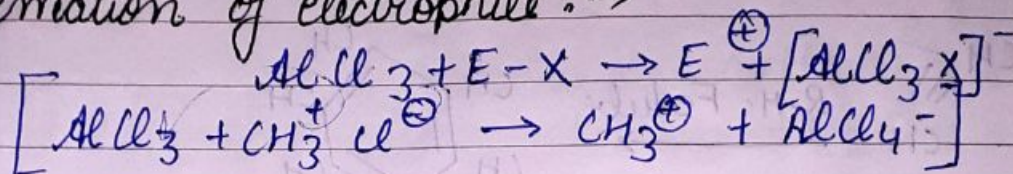 mation of electrophile :-
AlCl3 + E-X → E⊕ + [AlCl3X]⁻
[AlCl3 + CH3⁺ Cl⊖ → CH3⊕ + AlCl4⁻]